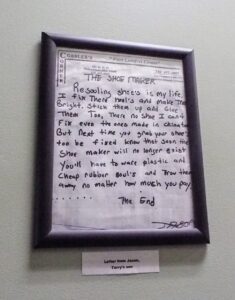 COBBLER'S
THE SHOE MAKER
Resouling shoe's is my life.
I fix There heal's and make Them
Bright. Stick them up and Glue
Them Too, There no shoe I can't
Fix even the ones made in
But Next time you grab your shoe's
too be fixed know that soon the
Shoe maker will no longer exist
You'll have to ware plastic and
Cheap rubber soul's and Trow them
away no matter how much you pay
The End
Letter from Jason,
Terry's son